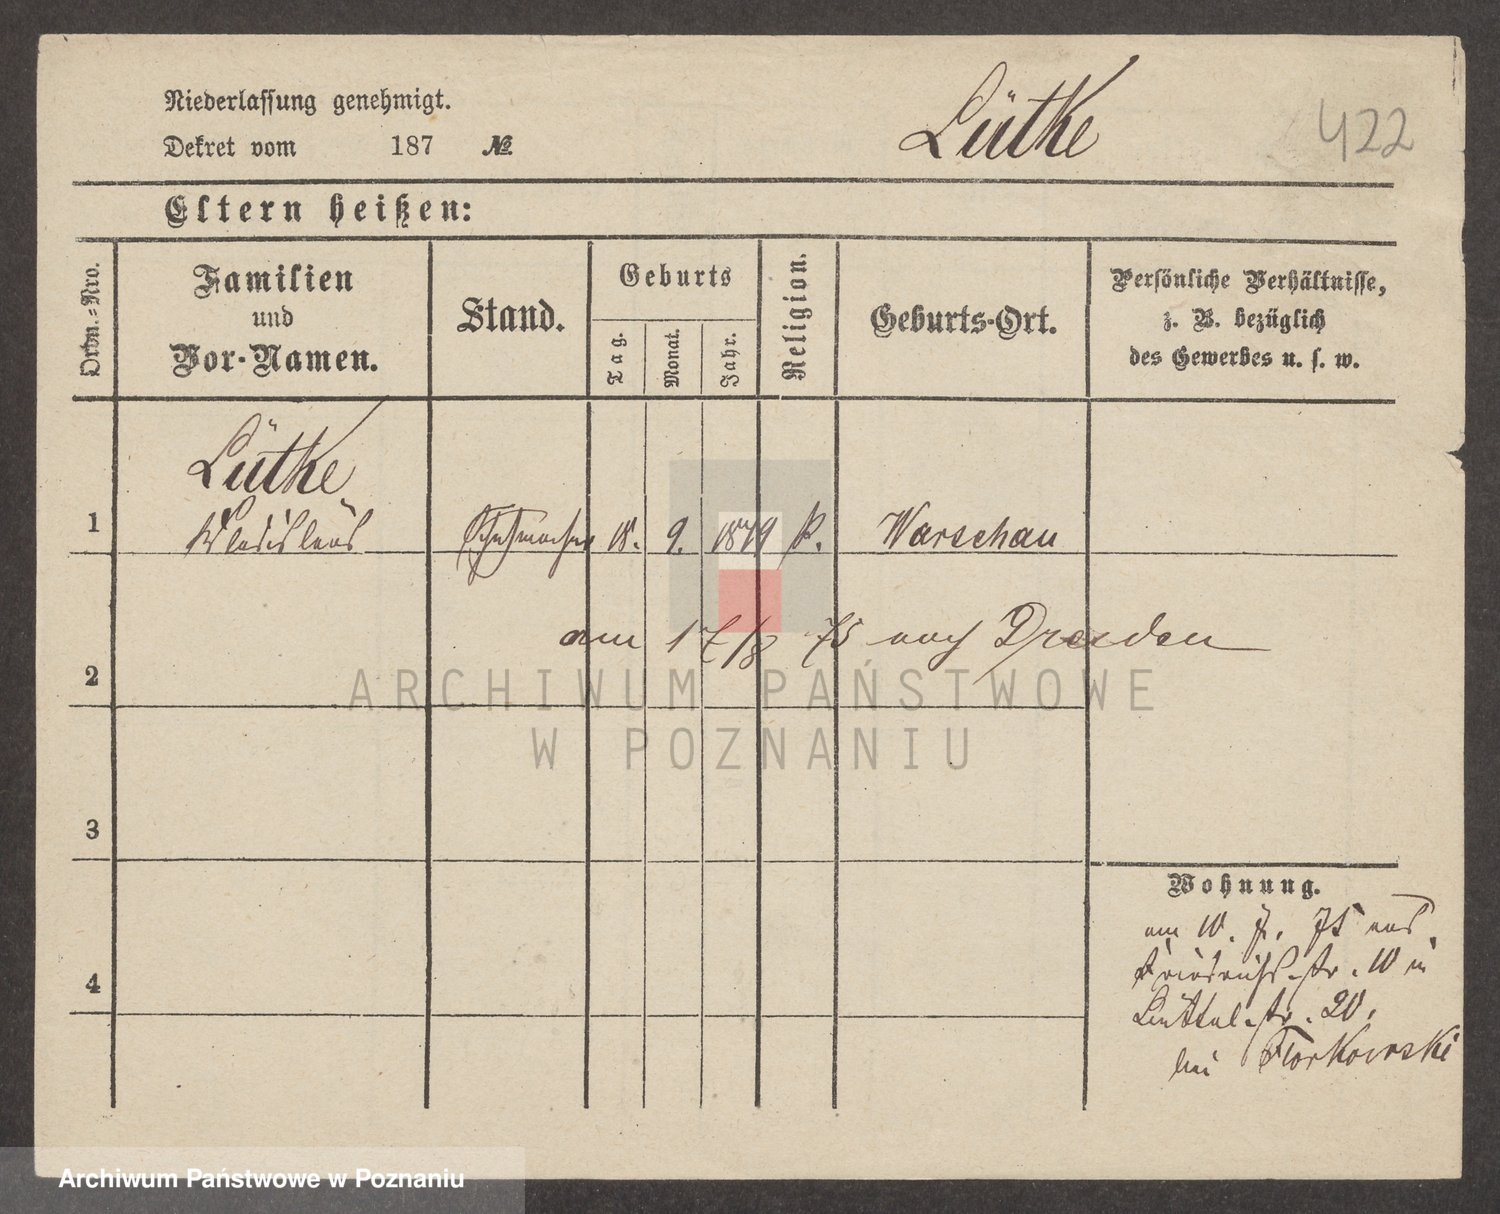 Niederlassung genehmigt.
Lütke
422
Dekret vom 187 №
Eltern heißen:
Ordn.-Nro.
Familien
und
Vor-Namen.
Stand.
Geburts
Tag.
Monat.
Jahr.
Religion.
Geburts-Ort.
Persönliche Verhältnisse,
z. B. bezüglich
des Gewerbes u. s. w.
Lütke
1 Wladislaus 18. 9. k. Warschau
am 17/8 75 nach Dresden
2
ARCHIWUM PAŃSTWOWE
W POZNANIU
3
Wohnung.
am 10. 7. 75 aus
4
Friedrichs-str. 10 in
Büttel-str. 20.
bei Florkowski
Archiwum Państwowe w Poznaniu